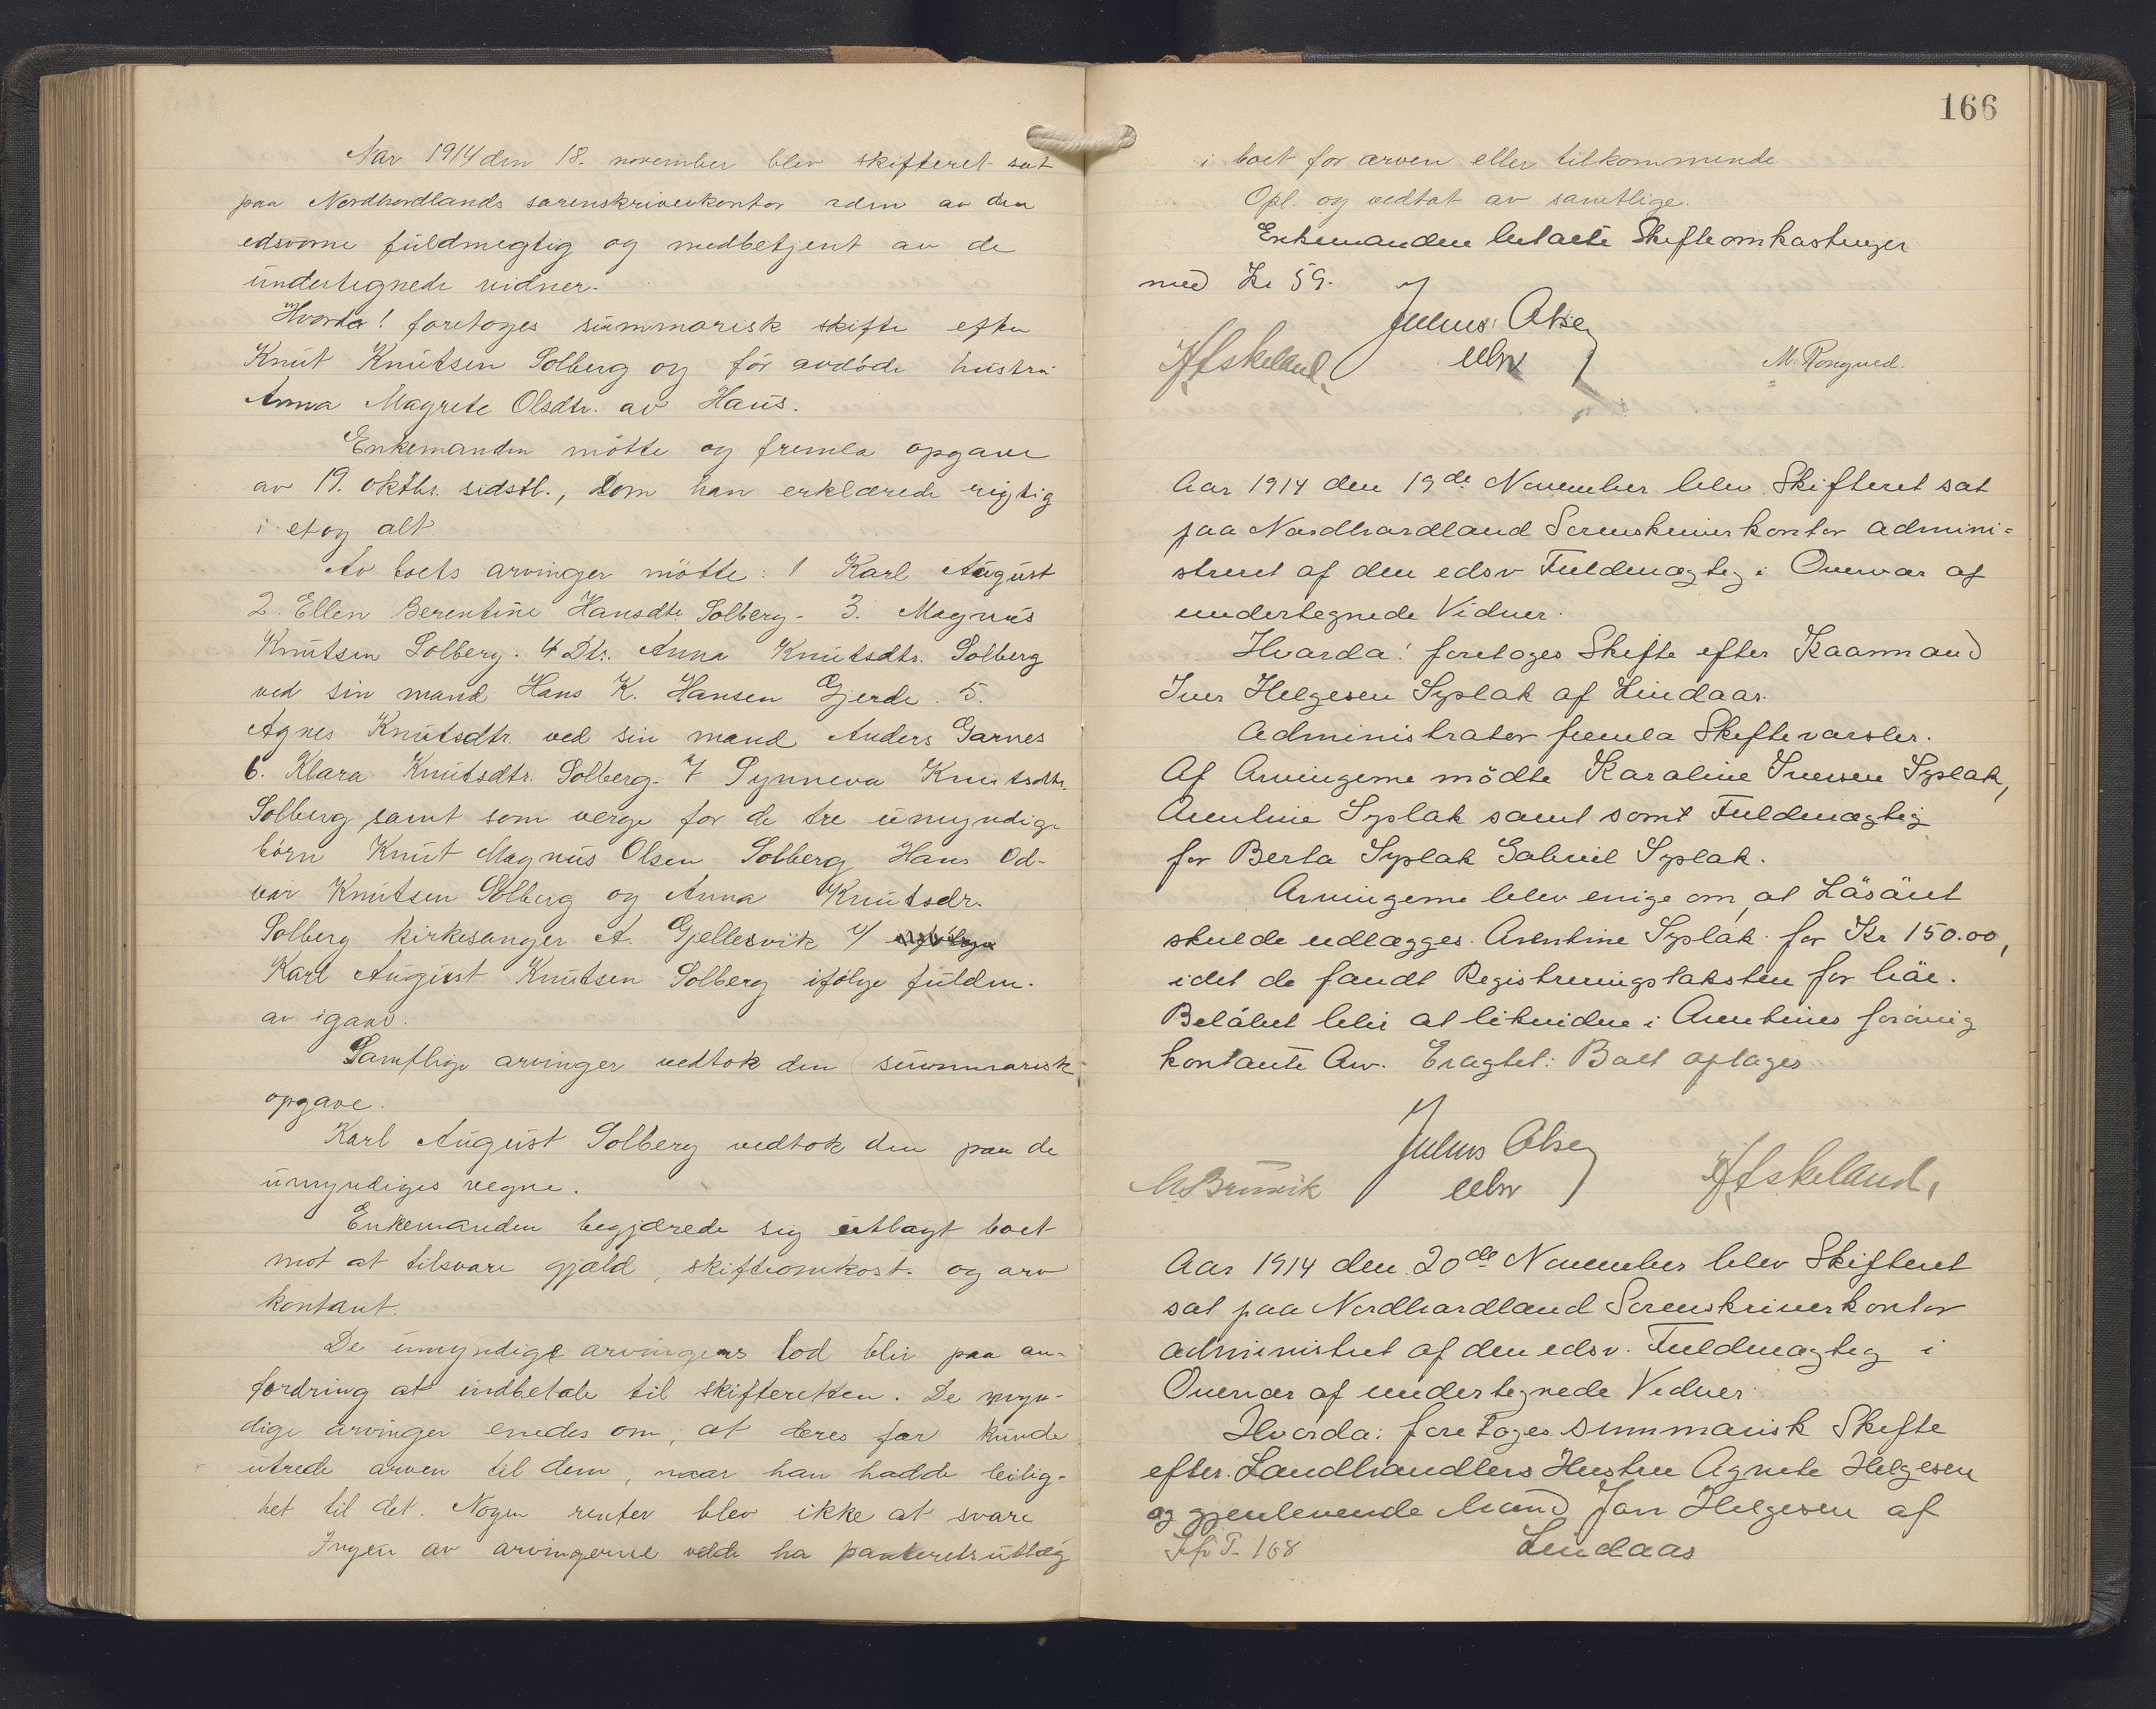 Aar 1914 den 18. november blev skifteret sat
paa Nordhordlands sorenskriverkontor adm av den
edsvorne fuldmegtig og medbetjent av de
undertegnede vidner.
Hvorda! foretoges summarisk skifte efter
Knut Knutsen Solberg og før avdöde hustru
Anna Magrete Olsdtr. av Haus.
Enkemanden mötte og fremla opgave
av 19. oktbr. sidstl., som han erklærede rigtig
i et og alt
Av boets arvinger mötte: 1 Karl August
2. Ellen Berentine Hansdtr Solberg - 3. Magnus
Knutsen Solberg. 4 Dtr. Anna Knutsdtr. Solberg
ved sin mand Hans K. Hansen Gjerde. 5.
Agnes Knutsdtr. ved sin mand Anders Garnes
6. Klara Knutsdtr. Solberg. 7 Synneva Knutsdtr.
Solberg samt som verge for de tre umyndige
börn Knut Magnus Olsen Solberg Hans Od-
var Knutsen Solberg og Anna Knutsdr.
Solberg kirkesanger A. Gjellesvik v/
Karl August Knutsen Solberg ifölge fuldm.
av igaar.
Samtlige arvinger vedtok den summarisk
opgave.
Karl August Solberg vedtok den paa de
umyndiges vegne.
Enkemanden begjærede sig utlagt boet
mot at tilsvare gjæld, skifteomkost. og arv
kontant.
De umyndige arvingers lod blir paa an-
fordring at indbetale til skifteretten. De myn-
dige arvinger enedes om, at deres far kunde
utrede arven til dem, naar han hadde leilig-
het til det. Nogen renter blev ikke at svare
Ingen av arvingerne vilde ha panteretsutlæg
166
i boet for arven eller tilkommende
Opl. og vedtat av samtlige.
Enkemanden betalte Skifteomkostninger
med Kr 59.
Julius Olsen
Askeland
M. Rongved.
Aar 1914 den 19de November blev Skifteret sat
paa Nordhordland Sorenskriverkontor admini=
streret af den edsv Fuldmægtig i Overvær af
undertegnede Vidner.
Hvorda! foretoges Skifte efter Kaarmand
Iver Helgesen Syslak af Lindaas.
Administrator fremla Skiftevarsler.
Af Arvingerne mödte Karoline Iversen Syslak,
Arentine Syslak samt som Fuldmægtig
for Berta Syslak Gabriel Syslak.
Arvingerne blev enige om, at Läsäret
skulde udlægges Arentine Syslak for Kr 150.00,
idet de fandt Registreringstaksten for häi.
Belöbet blir at likvidere i Arentines forövrig
kontante Arv. Eragtet: Boet optages
Julius Olsen
Askeland,
Aar 1914 den 20de November blev Skifteret
sat paa Nordhordland Sorenskriverkontor
administret af den edsv. Fuldmægtig i
Overvær af undertegnede Vidner
Hvorda: foretoges summarisk Skifte
efter Landhandlers Hustru Agnete Helgesen
og gjenlevende Mand Jan Helgesen af
Lindaas
168